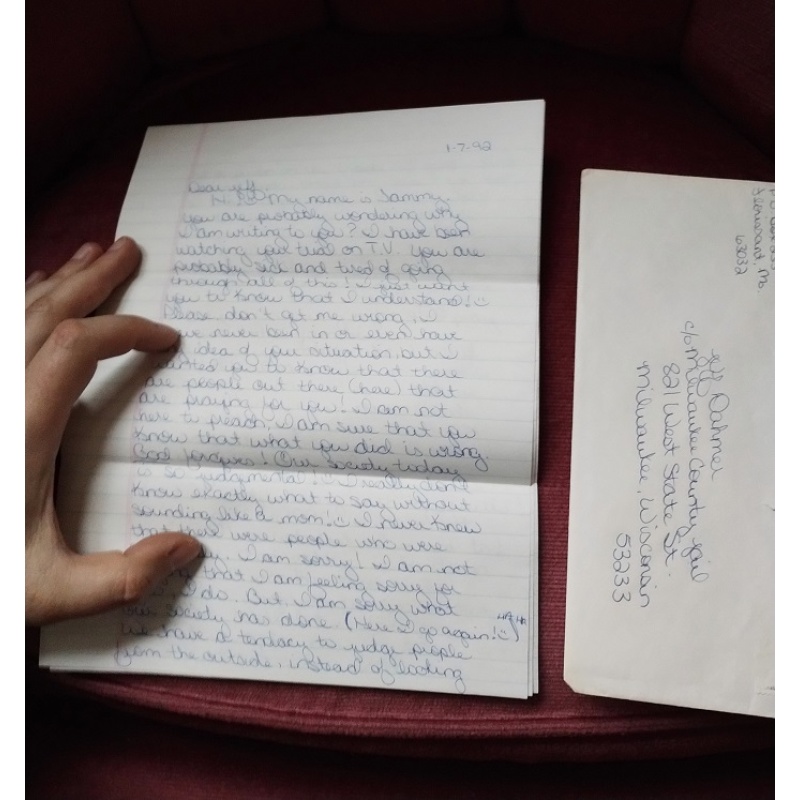 1-7-92
Dear Jeff,
Hi. My name is Tammy.
You are probably wondering why
I am writing to you? I have been
watching your trial on T.V. You are
probably sick and tired of going
through all of this! I just want
you to know that I understand!
Please don't get me wrong, I
never been in or even have
idea of your situation, but I
wanted you to know that there
are people out there (here) that
are praying for you! I am not
here to preach, I am sure that you
know that what you did is wrong.
God forgives! Our society today
is so judgmental! I really don't
know exactly what to say without
sounding like a mom! I never knew
that there were people who were
I am sorry! I am not
that I am feeling sorry for
I do. But I am sorry what
our society has done. (Here I go again!) HA HA
We have a tendacy to judge people
from the outside, instead of looking
Florissant, Mo.
63032
Jeff Dahmer
c/o Milwaukee County Jail
821 West State St.
Milwaukee, Wisconsin
53233